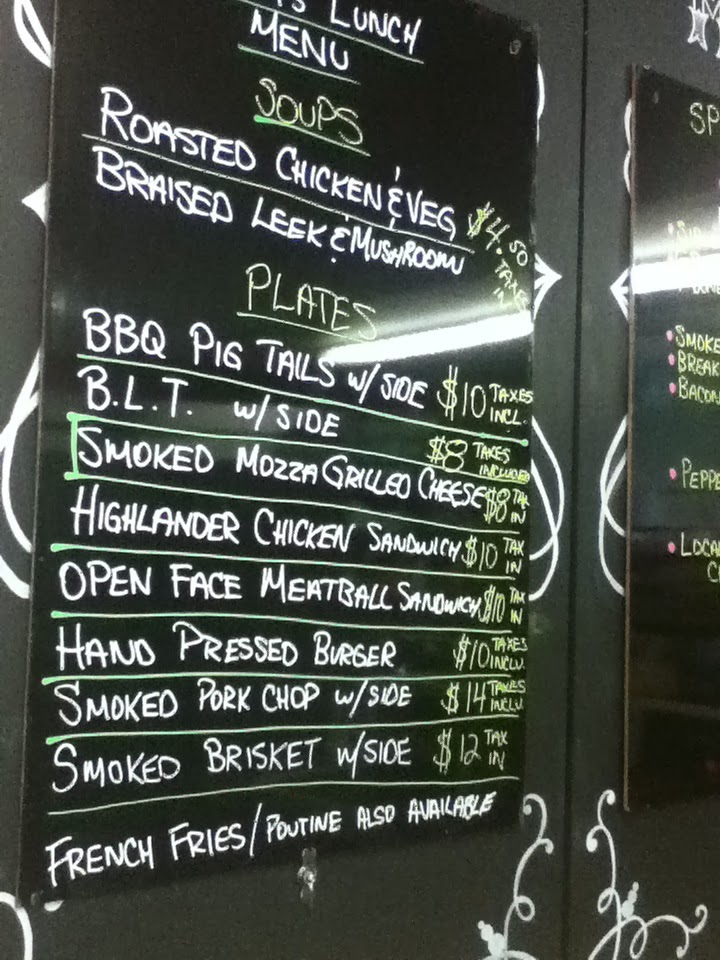 LUNCH
MENU
SOUPS
ROASTED CHICKEN & VEG
BRAISED LEEK & MUSHROOM $4.50 TAX IN
PLATES
BBQ PIG TAILS W/ SIDE $10 TAXES INCL.
B.L.T. W/ SIDE $8 TAXES INCLUDED
SMOKED MOZZA GRILLED CHEESE $8 TAX IN
HIGHLANDER CHICKEN SANDWICH $10 TAX IN
OPEN FACE MEATBALL SANDWICH $10 TAX IN
HAND PRESSED BURGER $10 TAXES INCLU.
SMOKED PORK CHOP W/ SIDE $14 TAXES INCLU.
SMOKED BRISKET W/ SIDE $12 TAX IN
FRENCH FRIES/POUTINE ALSO AVAILABLE
SP
• SMOKE
• BREAK
• BACON
• PEPPE
• LOCA